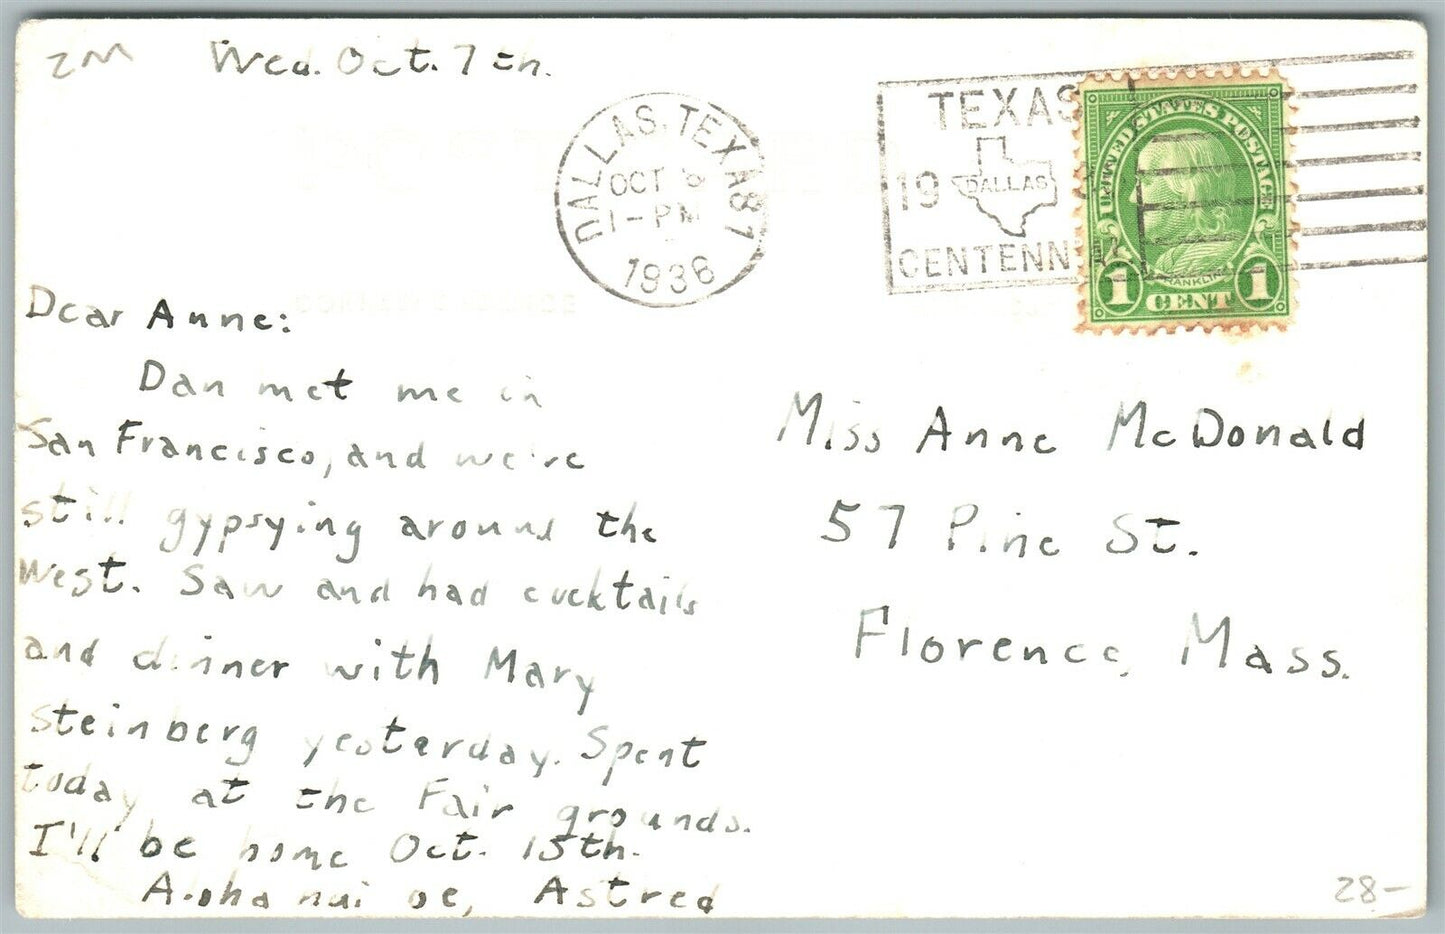 2M
Wed. Oct. 7th.
DALLAS, TEXAS 1
OCT 8
1-PM
1936
TEXAS
19
DALLAS
CENTENN
UNITED STATES POSTAGE
FRANKLIN
1 CENT 1
Dear Anne:
Dan met me in
San Francisco, and we're
still gypsying around the
West. Saw and had cocktails
and dinner with Mary
Steinberg yesterday. Spent
today at the Fair grounds.
I'll be home Oct. 15th.
Aloha nui oe, Astred
Miss Anne McDonald
57 Pine St.
Florence, Mass.
28-